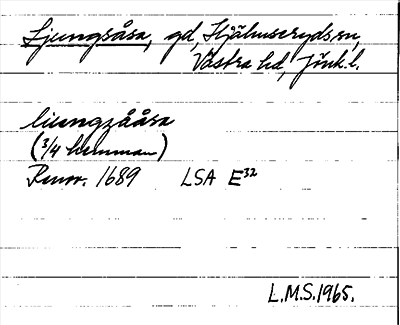 Ljungsåsa, gd, Hjälmseryds sn,
Västra hd, Jönk. l.
liungzååsa
(3/4 hemman)
Renov. 1689 LSA E32
L.M.S. 1965.